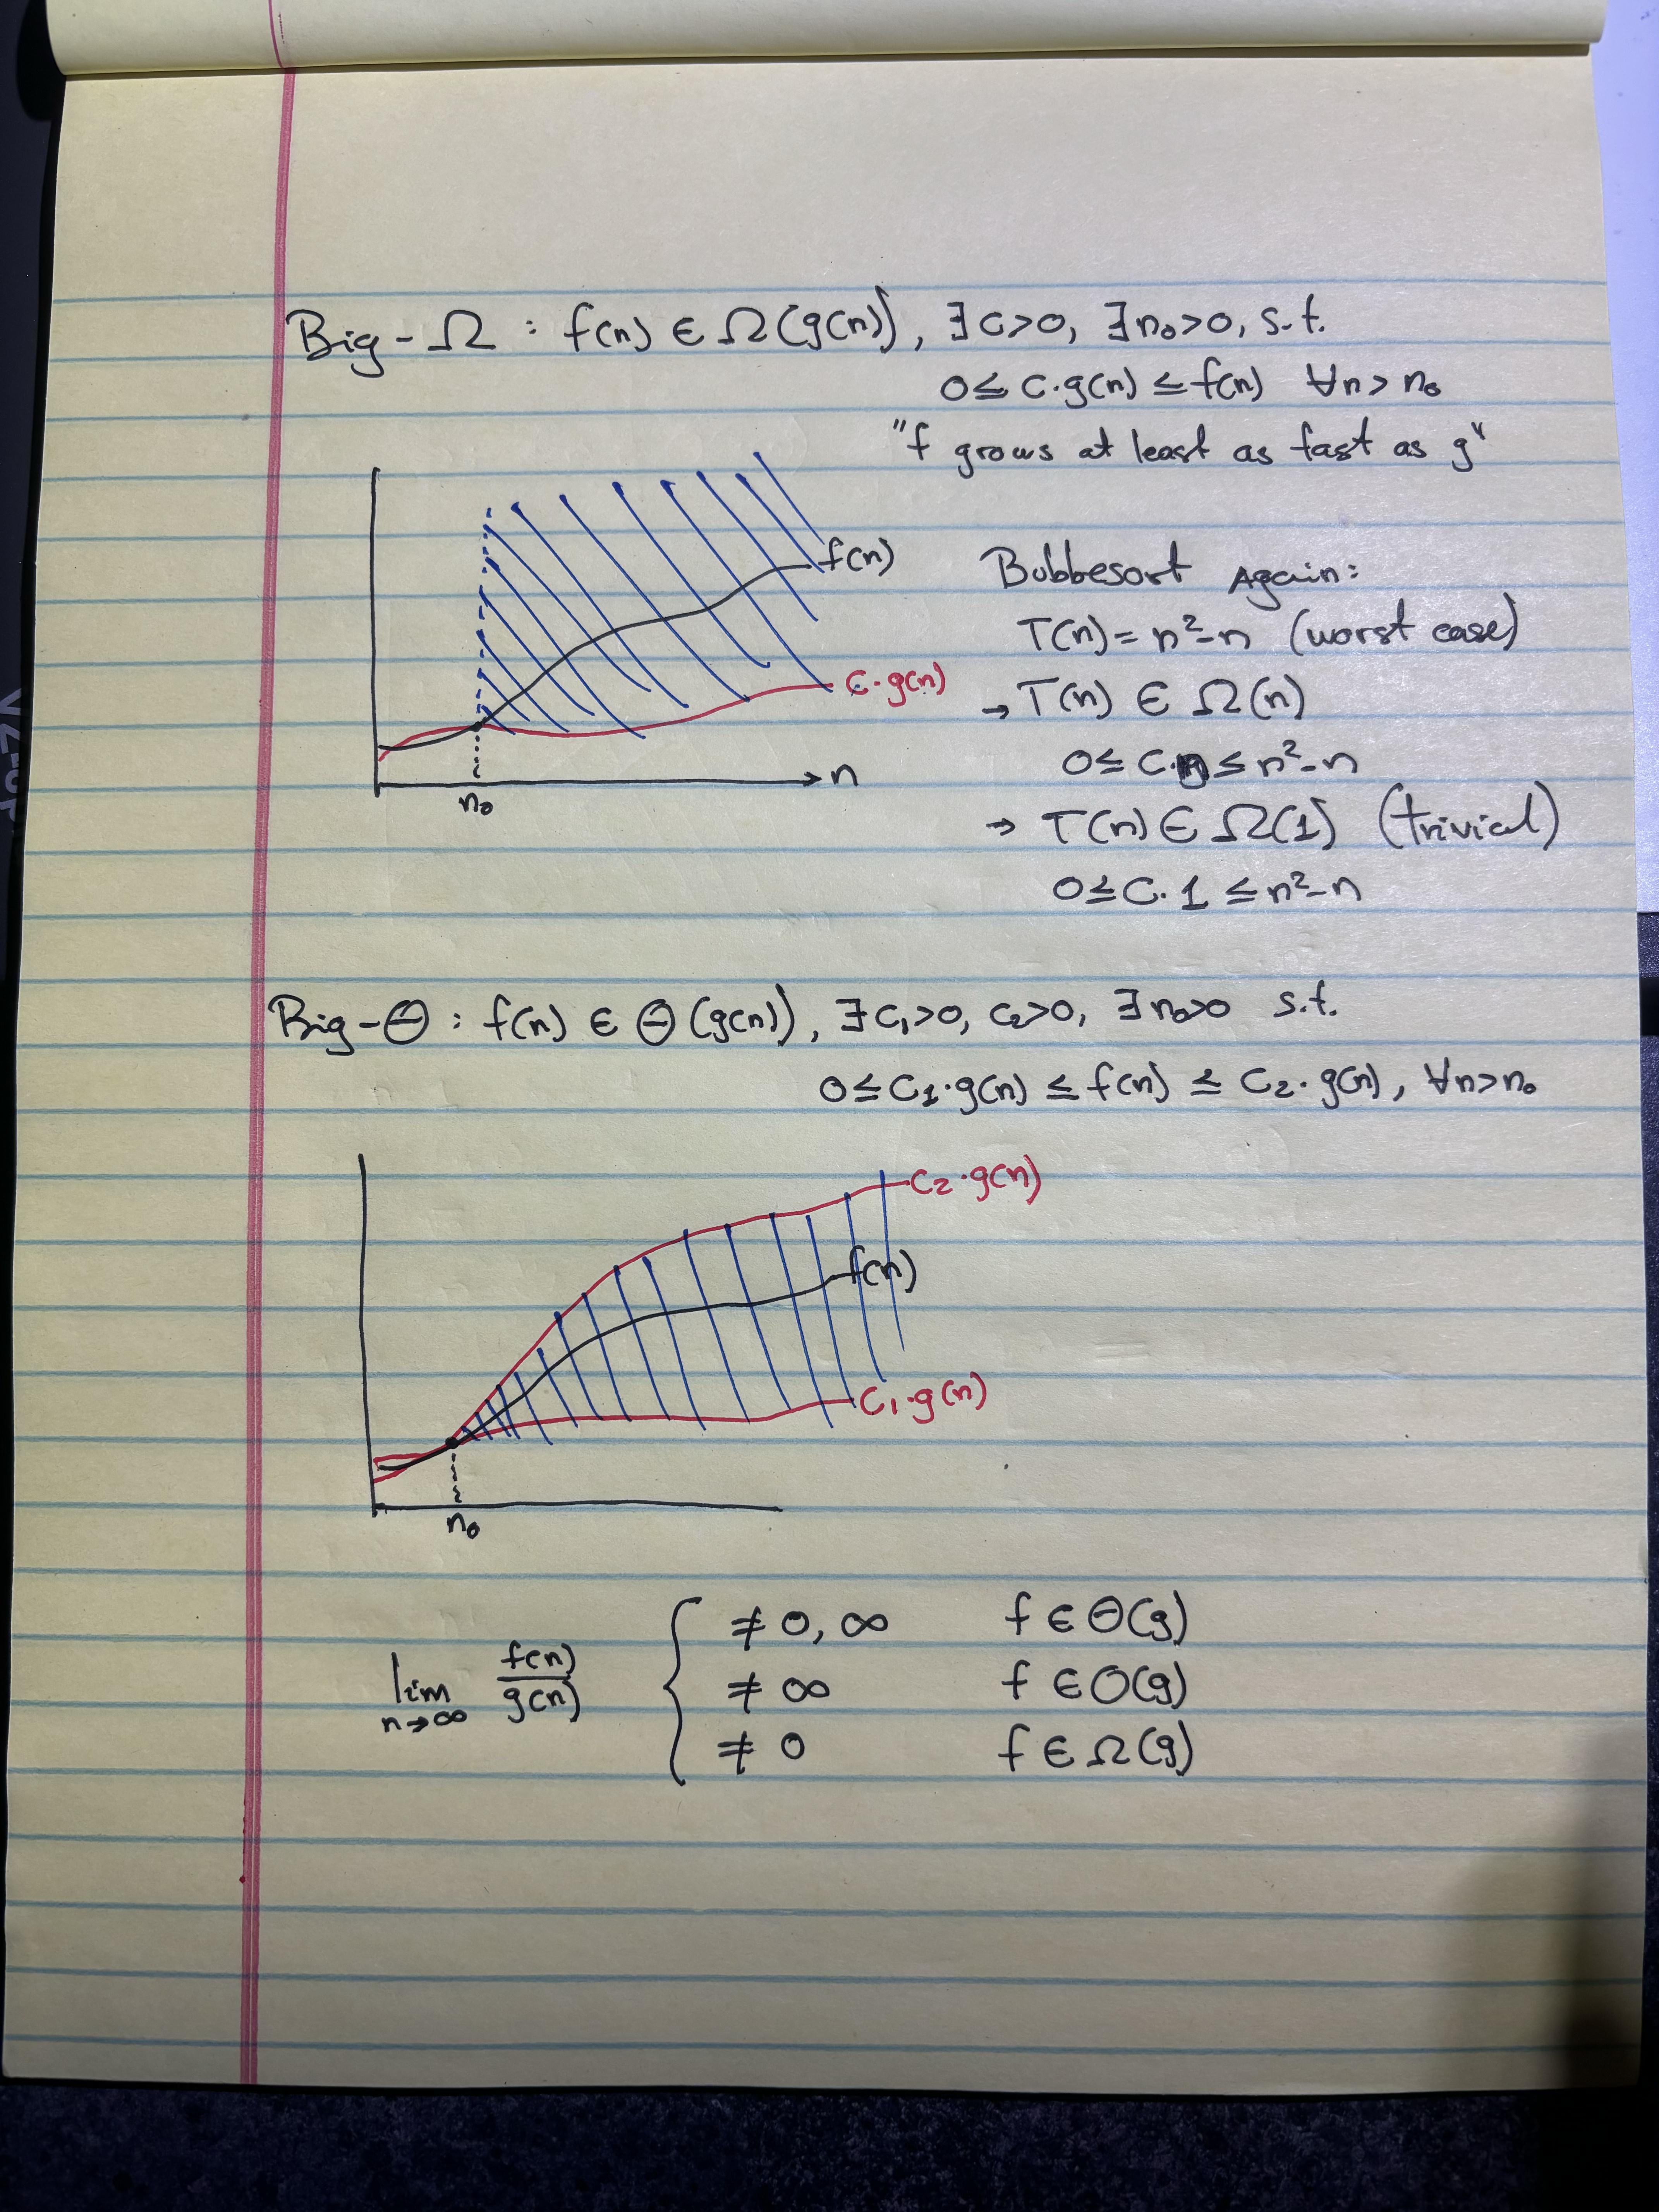 Big-Ω : f(n) ∈ Ω(g(n)), ∃c>0, ∃n₀>0, s.t.
0≤ c·g(n) ≤ f(n) ∀n > n₀
"f grows at least as fast as g"
f(n)
c·g(n)
n
n₀
Bubbesort Again:
T(n) = n²-n (worst case)
→ T(n) ∈ Ω(n)
0≤ c·n ≤ n²-n
→ T(n) ∈ Ω(1) (trivial)
0≤ c.1 ≤ n²-n
Big-Θ : f(n) ∈ Θ(g(n)), ∃c₁>0, c₂>0, ∃n₀>0 s.t.
0≤ c₁·g(n) ≤ f(n) ≤ c₂·g(n), ∀n>n₀
c₂·g(n)
f(n)
c₁·g(n)
n₀
lim n→∞ f(n)/g(n) {
≠ 0, ∞ f ∈ Θ(g)
≠ ∞ f ∈ O(g)
≠ 0 f ∈ Ω(g)